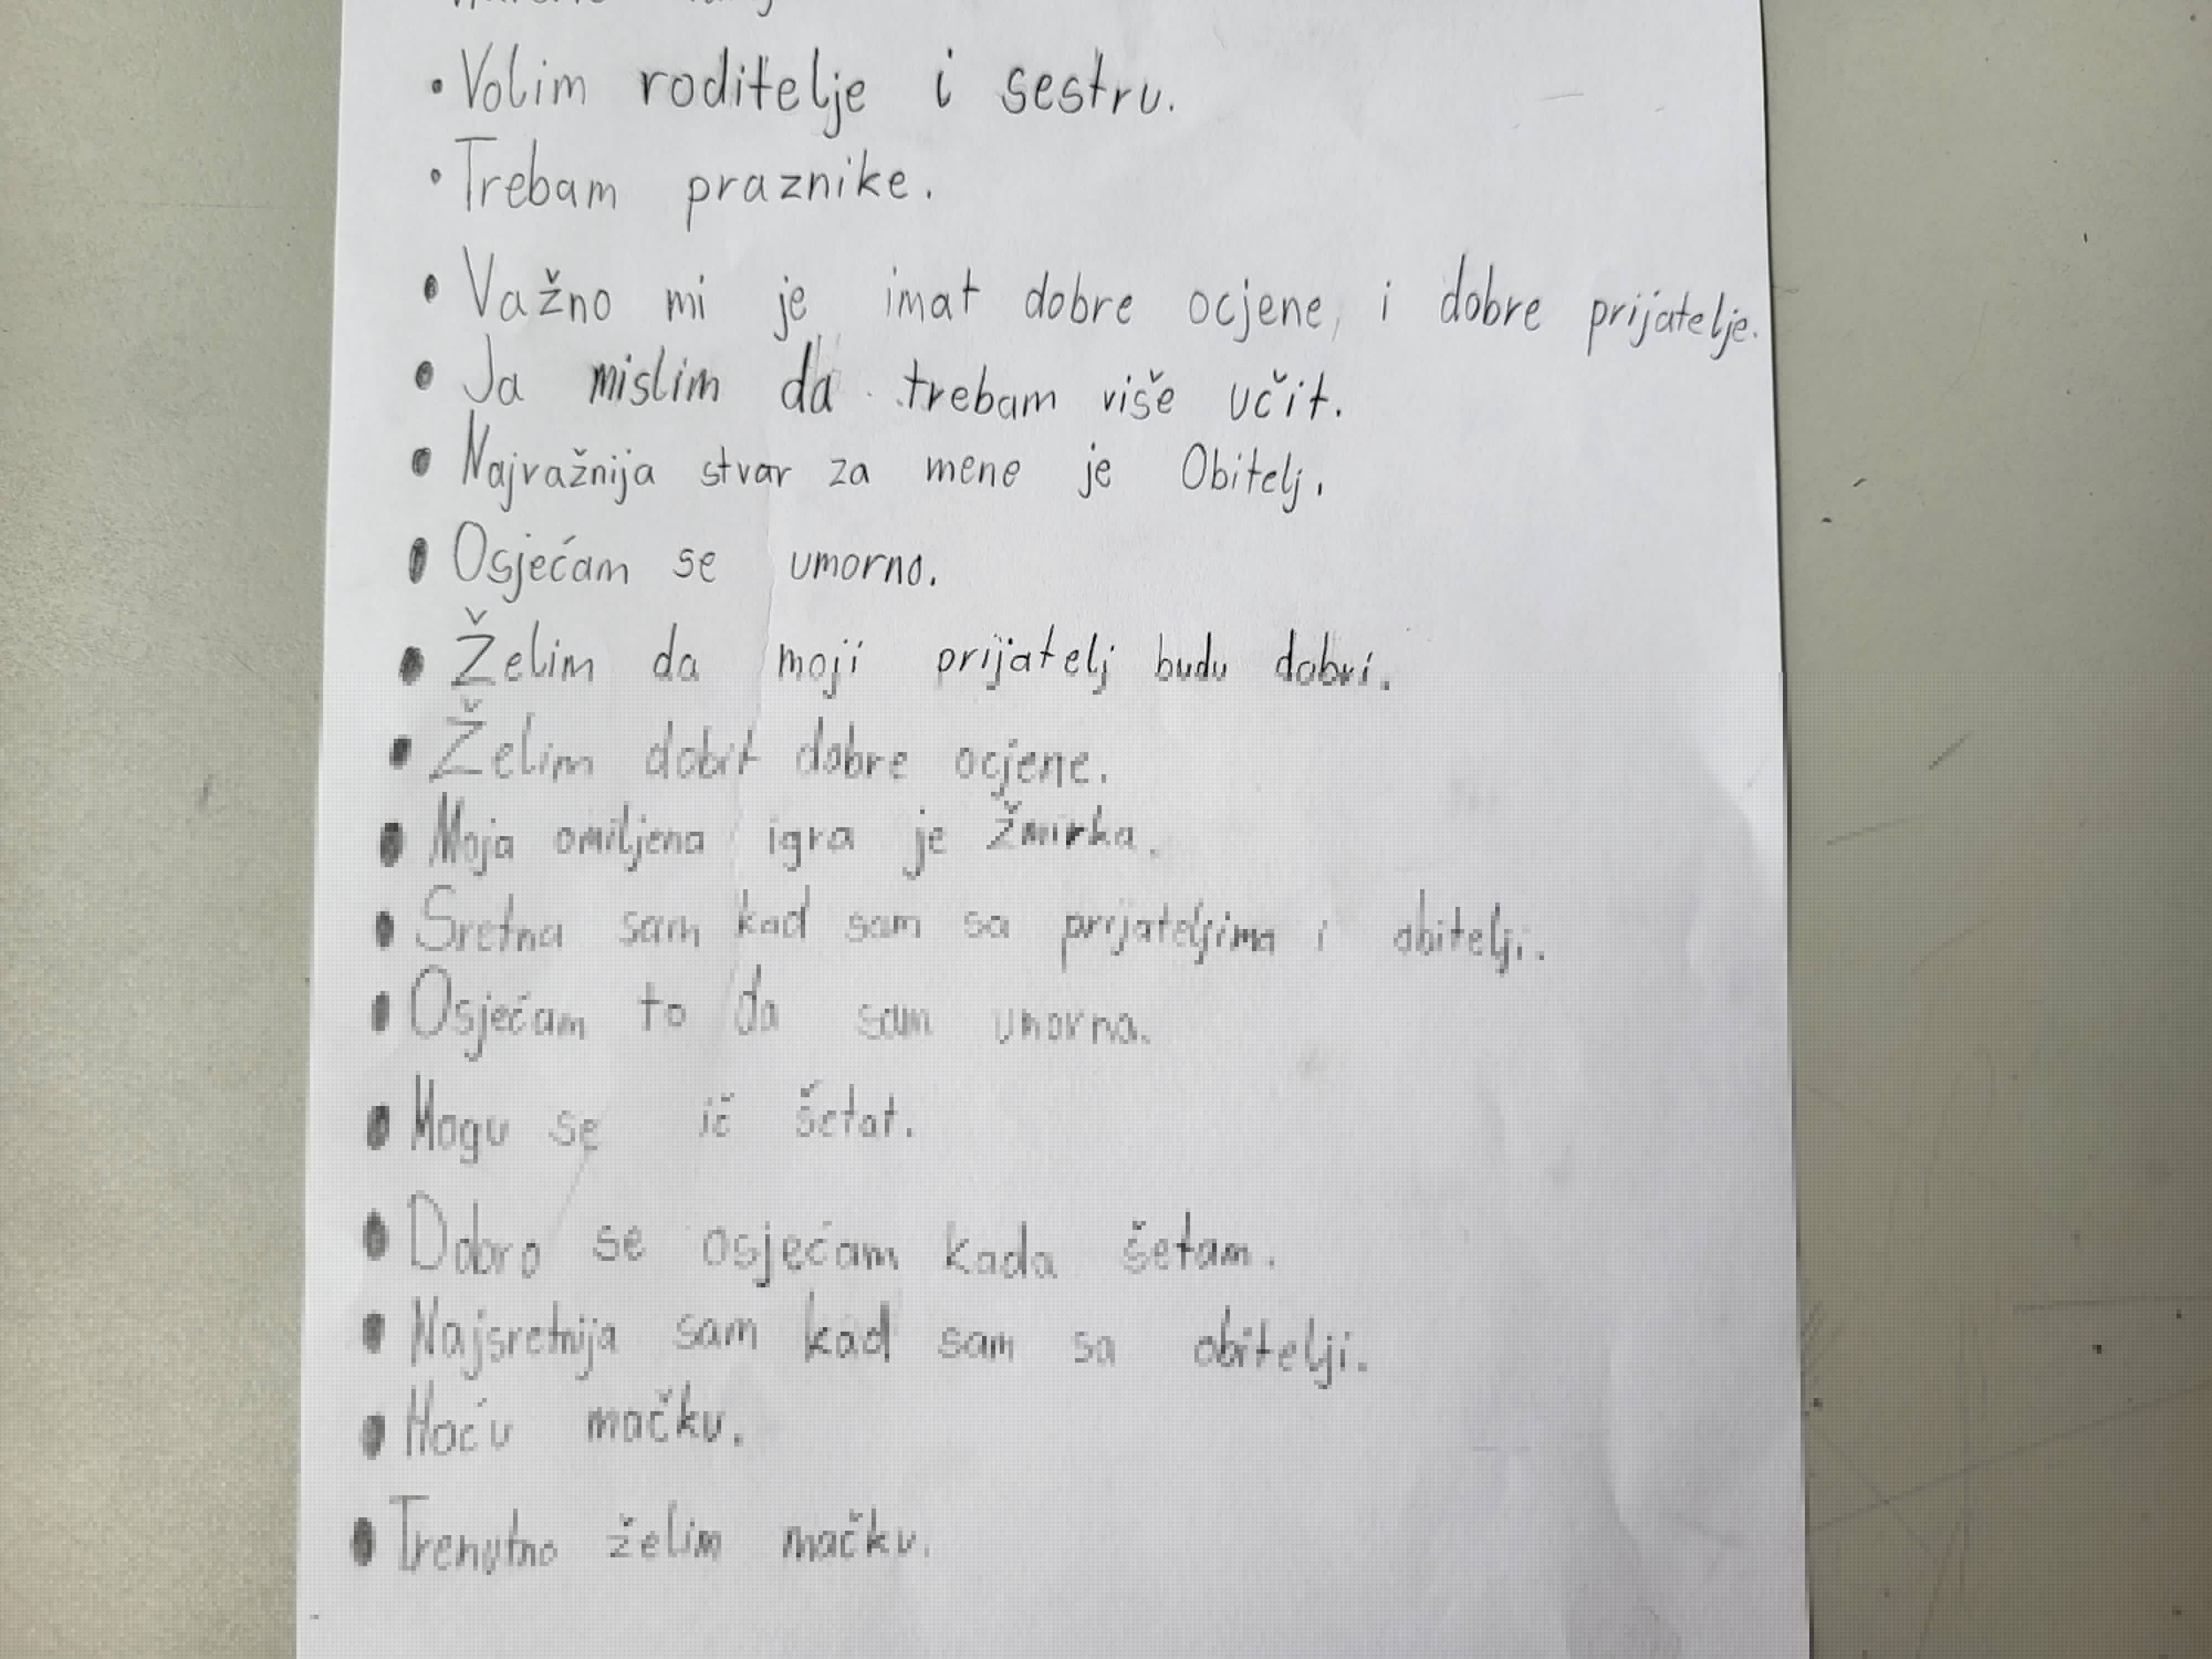 • Volim roditelje i sestru.
• Trebam praznike.
• Važno mi je imat dobre ocjene, i dobre prijatelje.
• Ja mislim da trebam više učit.
• Najvažnija stvar za mene je Obitelj.
• Osjećam se umorno.
• Želim da moji prijatelj budu dobri.
• Želim dobit dobre ocjene.
• Moja omiljena igra je žmirka.
• Sretna sam kad sam sa prijateljima i obitelji.
• Osjećam to da sam umorna.
• Mogu se ič šetat.
• Dobro se osjećam kada šetam.
• Najsretnija sam kad sam sa obitelji.
• Hoću mačku.
• Trenutno želim mačku.